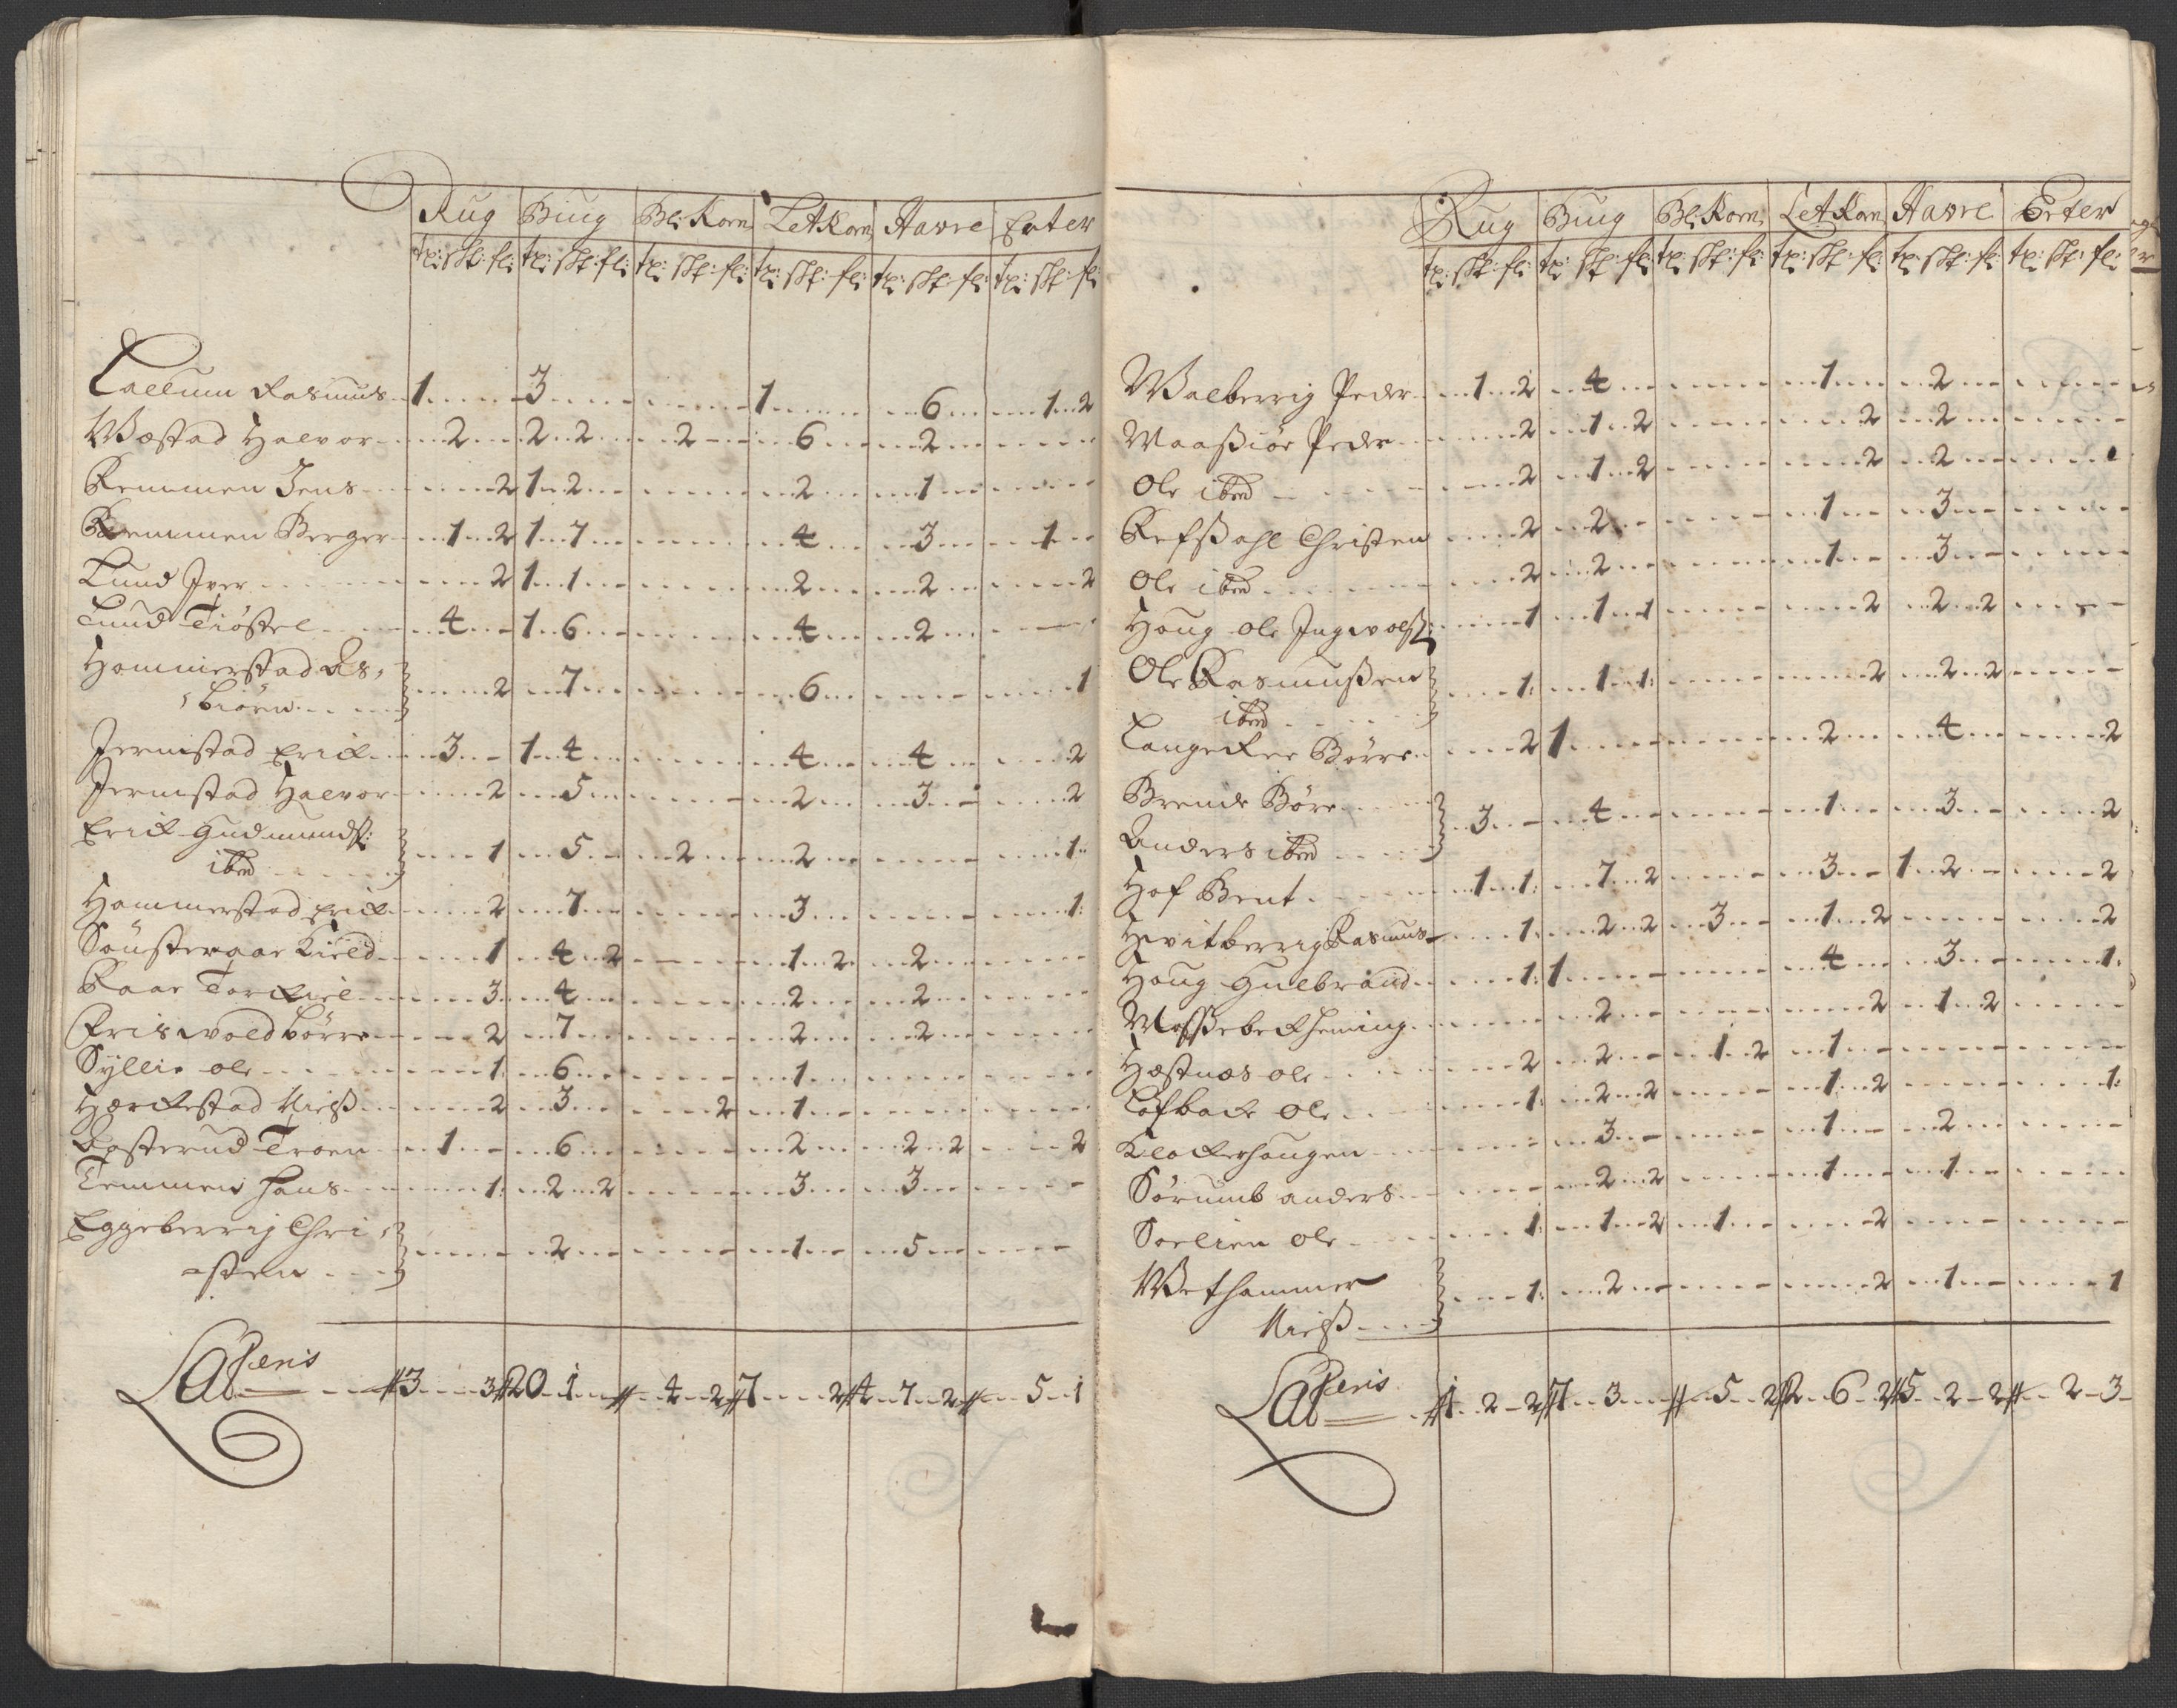 Rug Biug Bl: Korn LetKorn Havre Erter
tr: skp: fl: tr: skp: fl: tr: skp: fl: tr: skp: fl: tr: skp: fl: tr: skp: fl:
Callum Rasmus 1 3 1 6 1 2
Wæstad Halvor 2 2 2 2 6 2
Remmen Jens 2 1 2 2 1
Remmen Berger 1 2 1 7 4 3 1
Lund Iver 2 1 1 2 2 2
Lund Tiøstel 4 1 6 4 2
Hammerstad As,
,biörn 2 7 6 1
Jermstad Erich 3 1 4 4 4 2
Jermstad Halvor 2 5 2 3 2
Erich Gudmunds:
ibd 1 5 2 2 1
Hammerstad Erich 2 7 3 1
Sönsteraar Kield 1 4 2 1 2 2
Raar Torkiel 3 4 2 2
Friswold börre 2 7 2 2
Syllie ole 1 6 1
Hærkestad Nielß 2 3 2 1
Aasterud Troen 1 6 2 2 2 2
Temmen Hans 1 2 2 3 3
Eggeberrig Chri,
=sten 2 1 5
Lateris 3 3 20 1 4 2 7 2 4 7 2 5 1
Rug Biug Bl: Korn LetKorn Havre Erter
tr: skp: fl: tr: skp: fl: tr: skp: fl: tr: skp: fl: tr: skp: fl: tr: skp: fl:
Walberrig Peder 1 2 4 1 2
Maaßiöe Peder 2 1 2 2 2
Ole ibd 2 1 2 2 2
Refßahl Christen 2 2 1 3
Ole ibd 2 2 1 3
Houg ole Ingwolß: 1 1 1 2 2 2
Ole Rasmußen
ibd 1 1 1 2 2 2
Langeker Börre 2 1 2 4 2
Brende Böre
Anders ibd 3 4 1 3 2
Hof Brent 1 1 7 2 3 1 2 2
Hevitberrig Rasmus 1 2 2 3 1 2 2
Houg Gulbrand 1 1 4 3 1
Moßebek Heming 2 2 1 2
Hæstnæs ole 2 2 1 2 1
Lofback Ole 1 2 2 1 2 1
Klockerhougen 3 1 2
Sörumb anders 2 2 1 1
Sorlien Ole 1 1 2 1 2
Wethammer
Nielß 1 2 2 1 1
Lateris 1 2 2 7 3 5 2 2 6 2 5 2 2 2 3